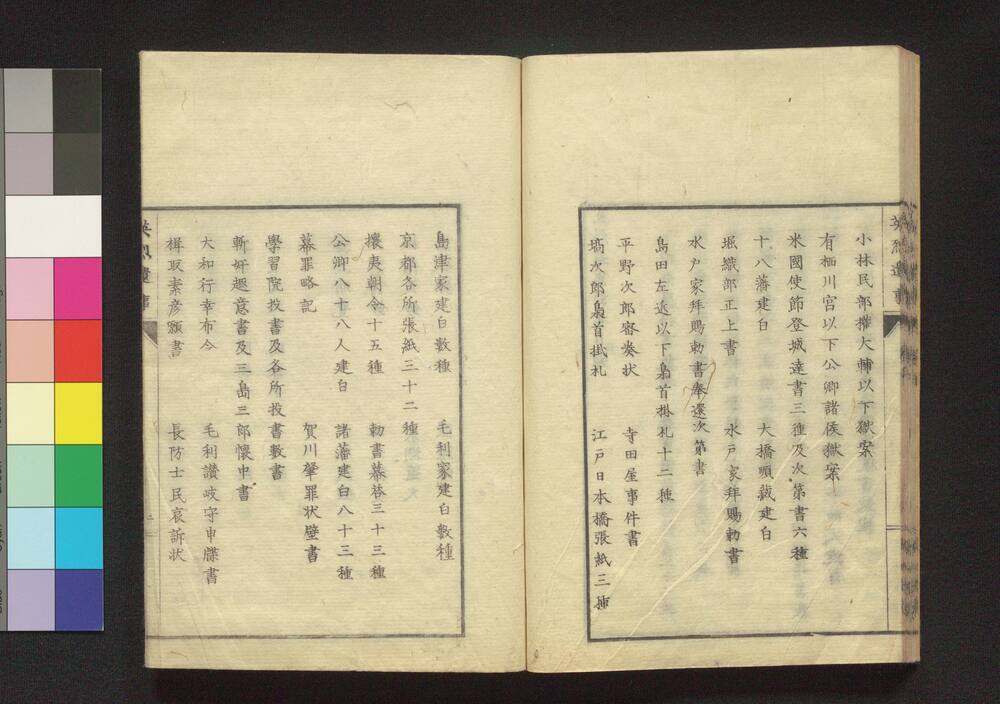 小林民部權大輔以下獄案
有栖川宮以下公卿諸侯獄案
米國使節登城達書三種及次第書六種
十八藩建白　大橋順蔵建白
堀織部正上書　水戸家拜賜勅書
水戸家拜賜勅書奉還次第書
島田左近以下梟首掛札十二種
平野次郎審奏状　寺田屋事件書
塙次郎梟首掛札　江戸日本橋張紙三種
島津家建白数種　毛利家建白數種
京都各所張紙三十二種
攘夷朝令十五種　勅書幕答三十三種
公卿八十八人建白　諸藩建白八十三種
幕罪略記　賀川肇罪状壁書
學習院投書及各所投書數書
斬奸趣意書及三島三郎懐中書
大和行幸布令　毛利讃岐守申牒書
楫取素彦願書　長防士民哀訴状